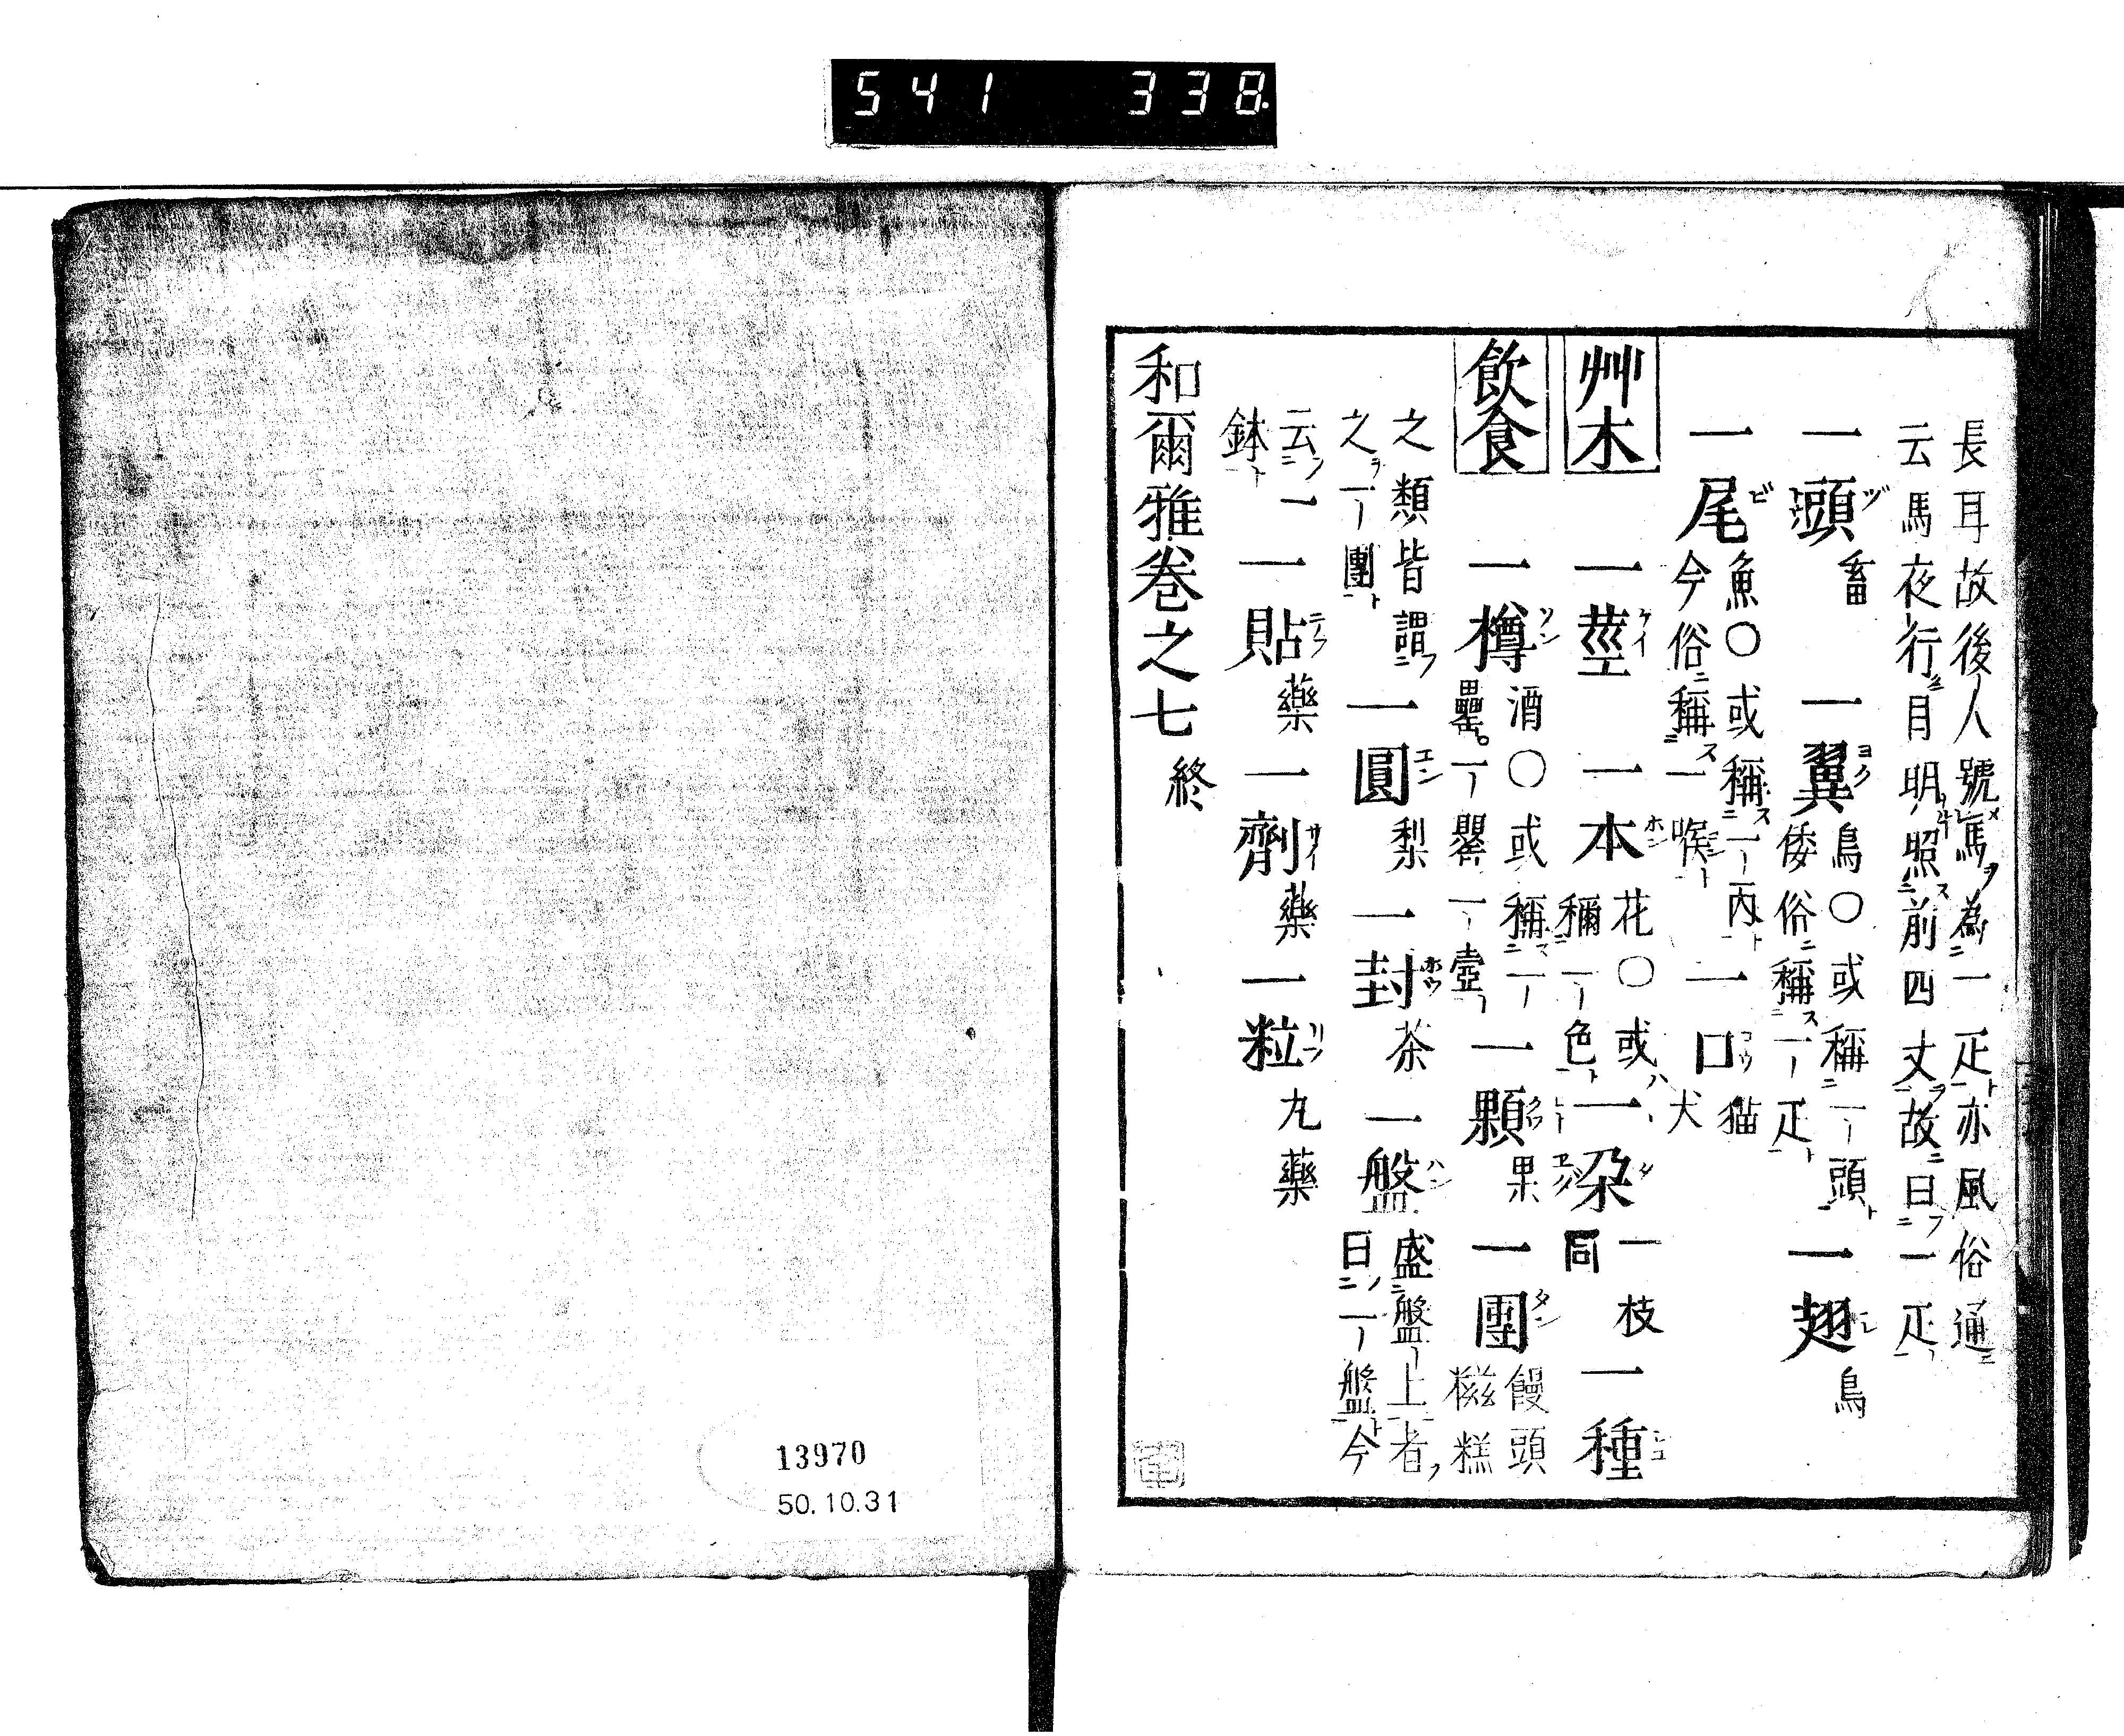 541 338
長耳故後人號馬為一疋亦風俗通
云馬夜行目明照前四丈故曰一疋
一頭畜 一翼鳥〇或稱一頭 倭俗稱一疋 一翅鳥
一尾魚〇或稱一丙 今俗稱一喉 一口猫犬
艸木 一莖 一本花〇或 稱一色 一朶一枝同 一種
飲食 一樽酒〇或稱一罍。一罌一壺 一顆果 一團饅頭糍糕
之類皆謂之一團 一圓梨 一封茶 一盤盛盤上者曰一盤今
云一鉢 一貼藥 一劑藥 一粒丸藥
和爾雅卷之七終
13970
50.10.31